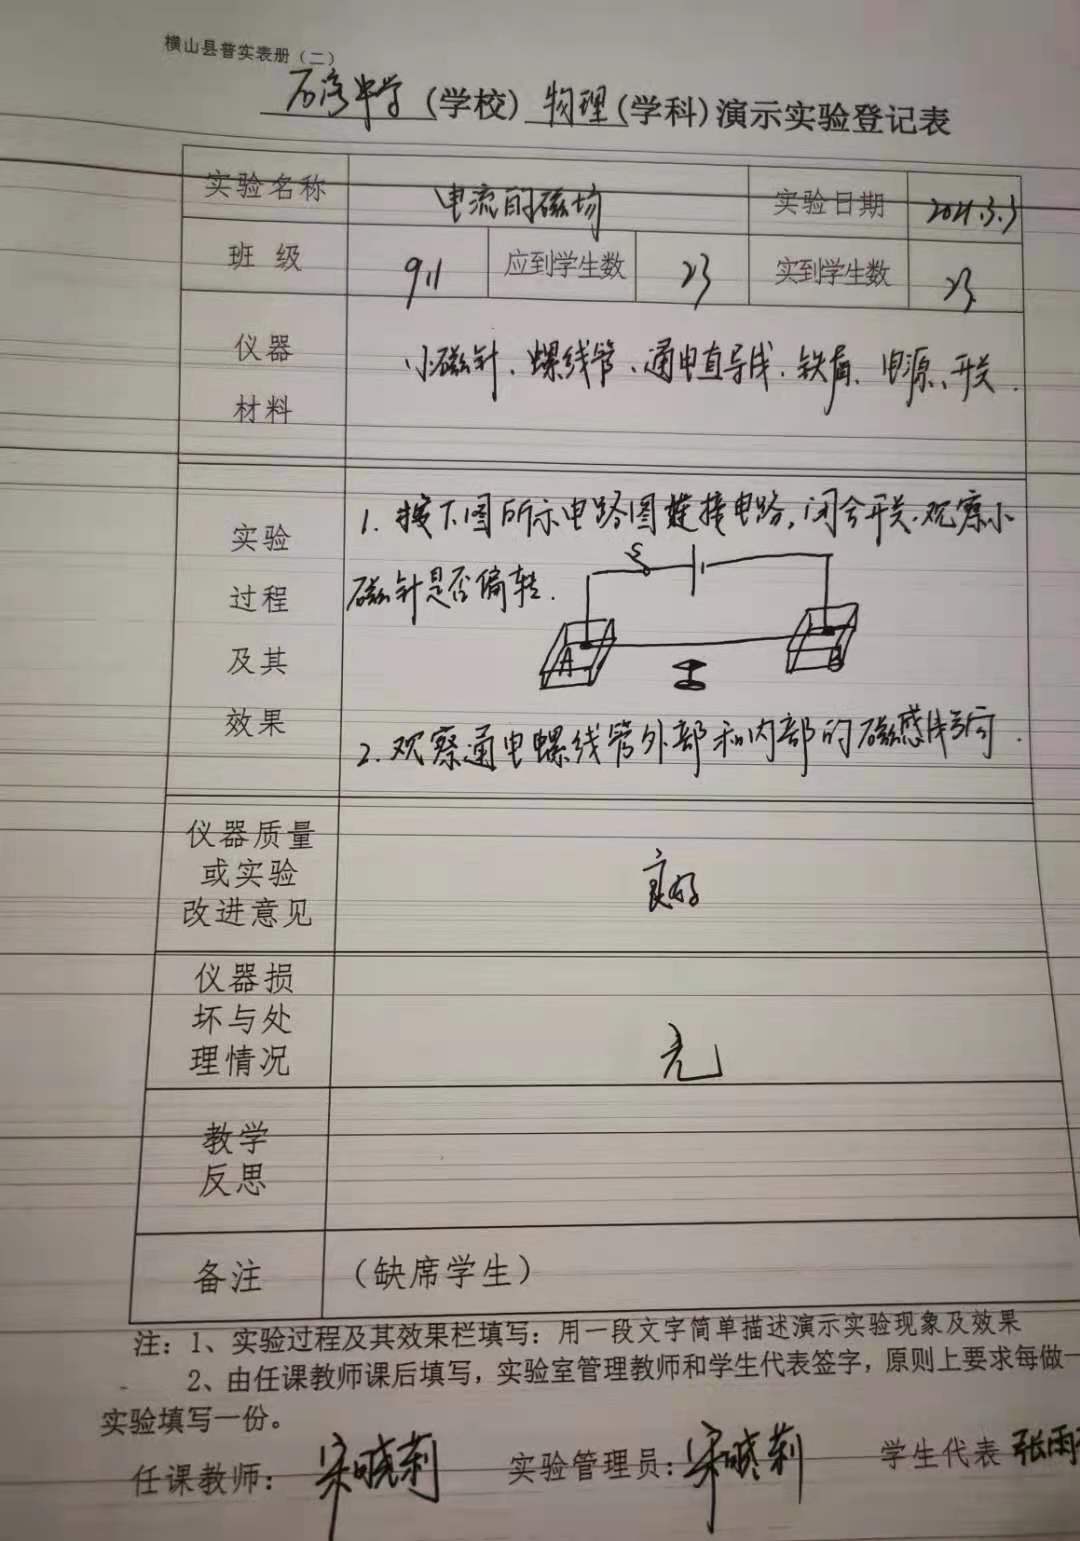 横山县普实表册（二）
石湾中学（学校）物理（学科）演示实验登记表
实验名称 电流的磁场 实验日期 2021.3.3
班级 9.1 应到学生数 23 实到学生数 23
仪器
材料
小磁针、螺线管、通电直导线、铁屑、电源、开关.
实验
过程
及其
效果
1. 按下图所示电路图连接电路,闭合开关.观察小
磁针是否偏转.
S
A B
2. 观察通电螺线管外部和内部的磁感线方向.
仪器质量
或实验
改进意见
良好
仪器损
坏与处
理情况
无
教学
反思
备注 （缺席学生）
注：1、实验过程及其效果栏填写：用一段文字简单描述演示实验现象及效果
2、由任课教师课后填写，实验室管理教师和学生代表签字，原则上要求每做一
实验填写一份。
任课教师：宋晓莉 实验管理员：宋晓莉 学生代表 张雨